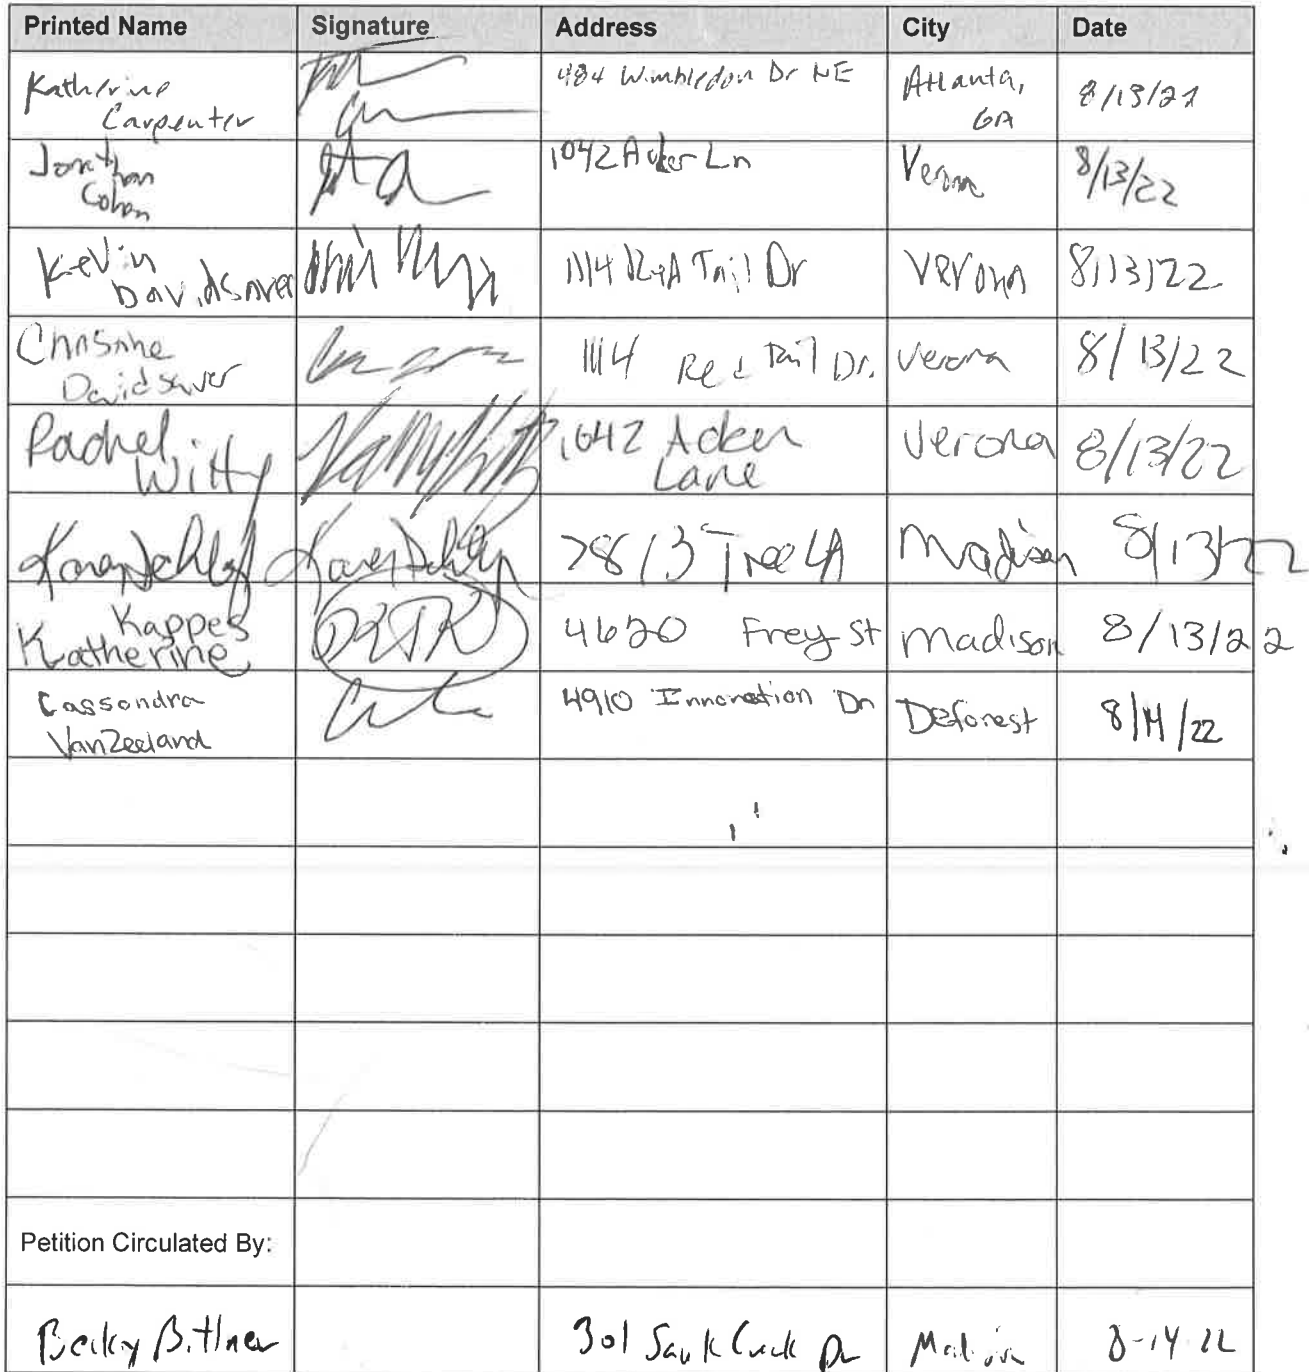 Printed Name Signature Address City Date
Katherine Carpenter 484 Wimbledon Dr NE Atlanta, GA 8/13/22
Jonathan Cohen 1042 Acker Ln Verona 8/13/22
Kevin Davidsaver 1114 Red Tail Dr Verona 8/13/22
Christine Davidsaver 1114 Red Tail Dr. Verona 8/13/22
Rachel Witty 1042 Acker Lane Verona 8/13/22
Karen 7813 Tree LA Madison 8/13/22
Kappes Katherine 4620 Frey St Madison 8/13/22
Cassondra VanZeeland 4910 Innovation Dr Deforest 8/14/22
Petition Circulated By:
Becky Bittner 301 Sauk Creek Dr Madison 8-14-22